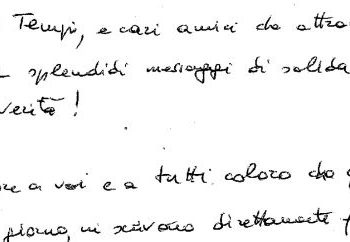 Tempi, e cari amici che attra
splendidi messaggi di solida
verità!
re a voi e a tutti coloro che
giorno, vi scrivono direttamente